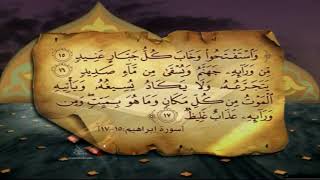 وَاسْتَفْتَحُوا وَخَابَ كُلُّ جَبَّارٍ عَنِيدٍ ١٥
مِّن وَرَائِهِ جَهَنَّمُ وَيُسْقَىٰ مِن مَّاءٍ صَدِيدٍ ١٦
يَتَجَرَّعُهُ وَلَا يَكَادُ يُسِيغُهُ وَيَأْتِيهِ
الْمَوْتُ مِن كُلِّ مَكَانٍ وَمَا هُوَ بِمَيِّتٍ وَمِن
وَرَائِهِ عَذَابٌ غَلِيظٌ ١٧
سورة إبراهيم: ١٥-١٧